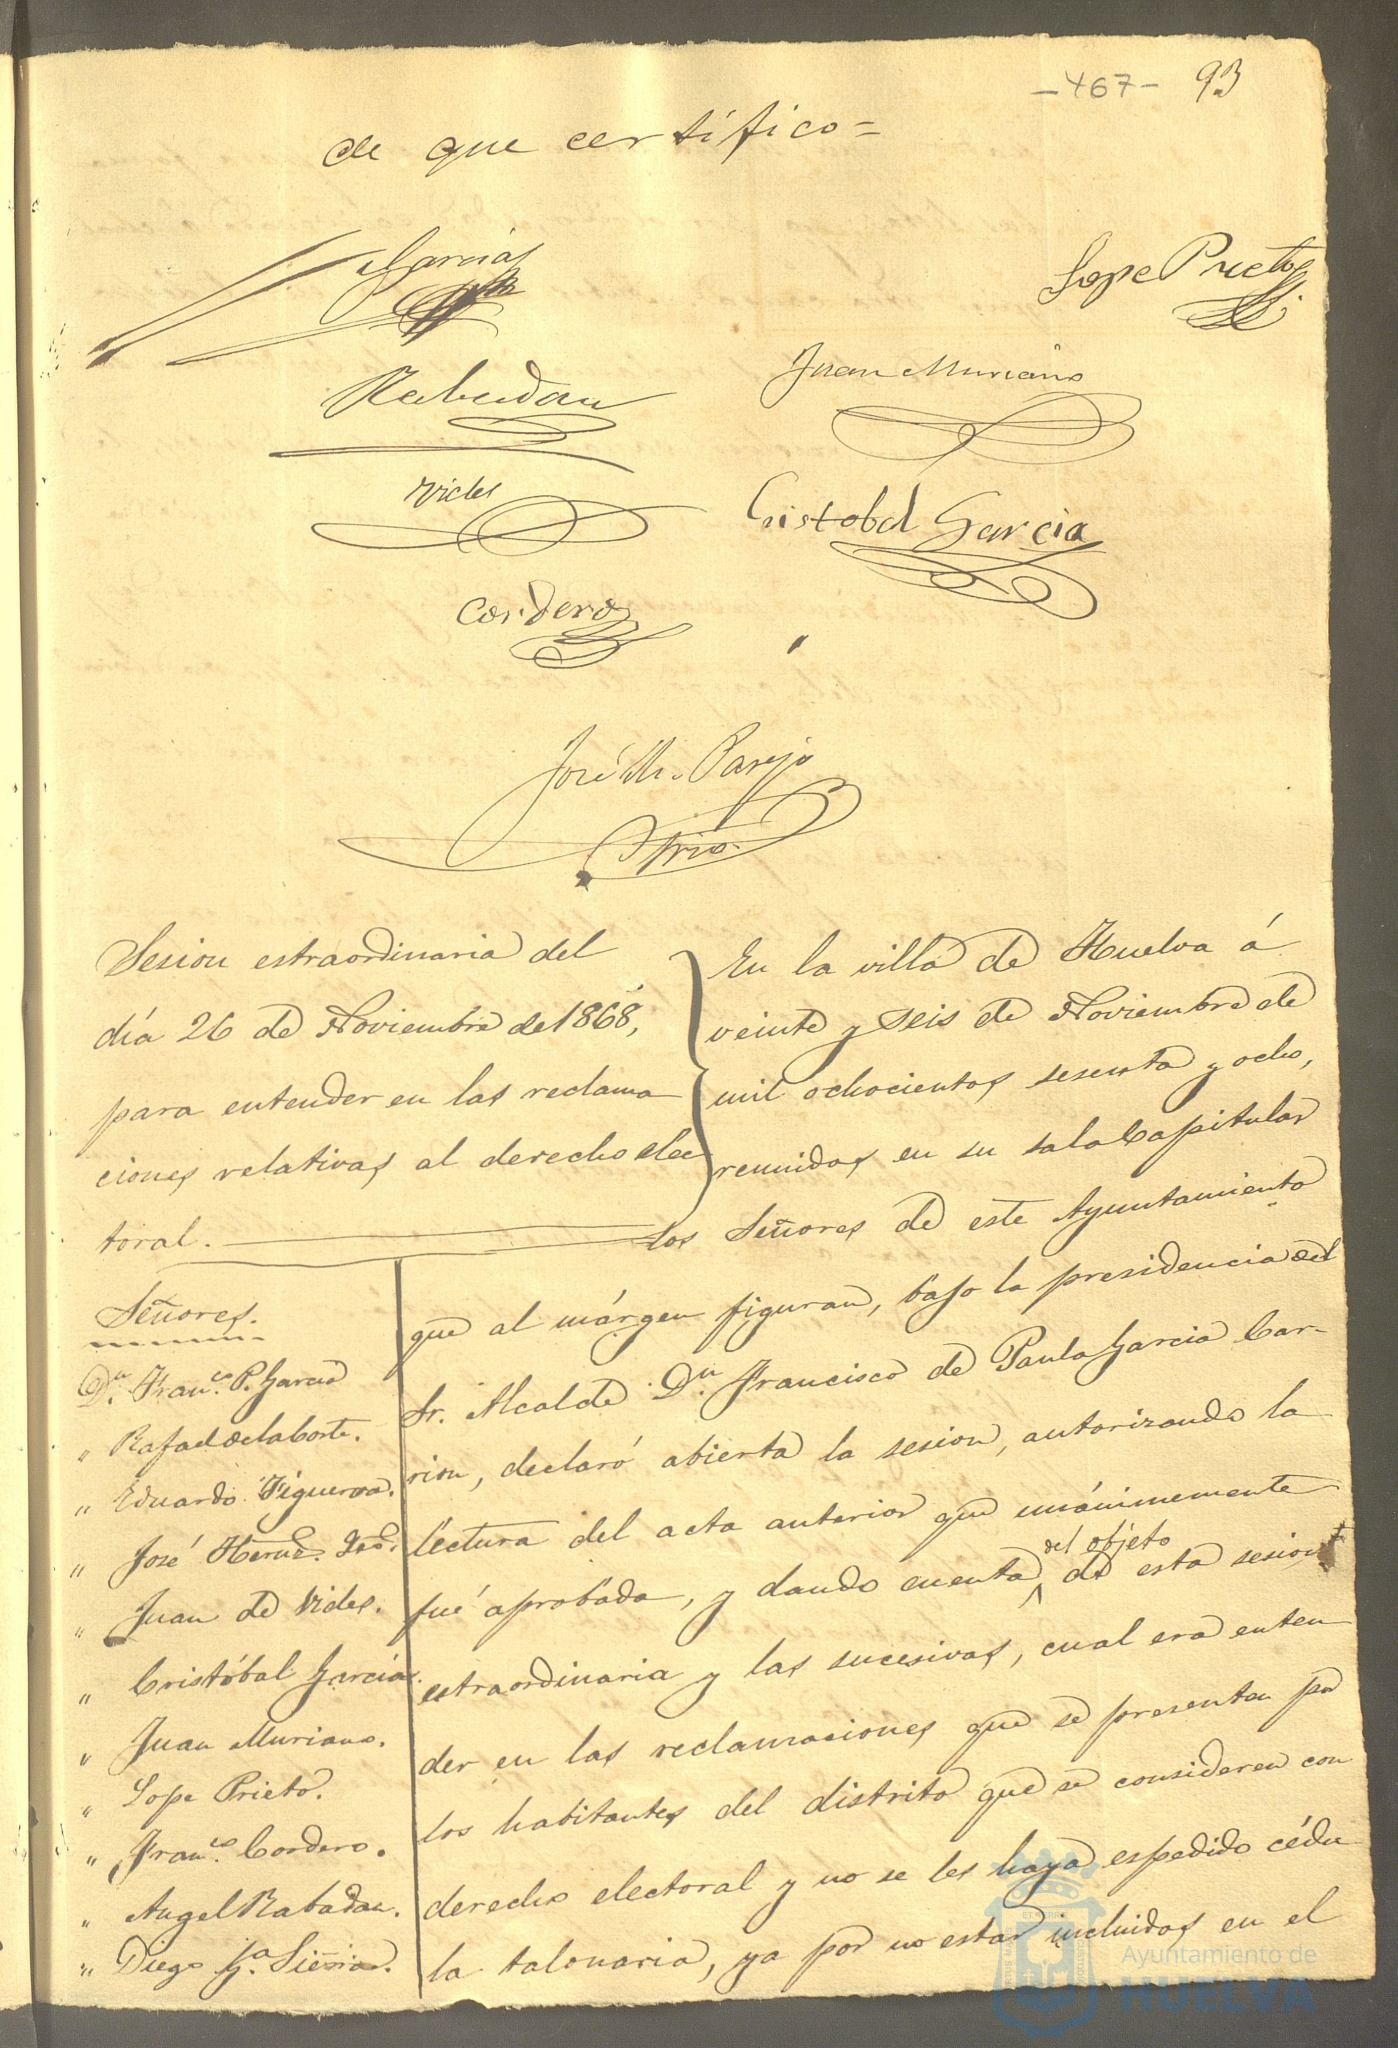 -467- 93
de que certifico=
Garcia
Lope Prieto
Rabadan
Juan Muriano
Vides
Cristobal Garcia
Cordero
José M. Parejo
Srio.
Sesion estraordinaria del
dia 26 de Noviembre de 1868,
para entender en las reclama
ciones relativas al derecho elec
toral.
Señores.
Dn. Franco. P. Garcia
" Rafael de la Corte.
" Eduardo Figueroa.
" José Hernd.
" Juan de Vides.
" Cristóbal García.
" Juan Muriano.
" Lope Prieto.
" Franco. Cordero.
" Angel Rabadan.
" Diego Ga.
En la villa de Huelva á
veinte y seis de Noviembre de
mil ochocientos sesenta y ocho,
reunidos en su sala Capitular
los Señores de este Ayuntamiento
que al márgen figuran, bajo la presidencia del
Sr. Alcalde Dn. Francisco de Paula Garcia Car-
rion, declaró abierta la sesion, autorizando la
lectura del acta anterior que unánimemente
fué aprobada, y dando cuenta del objeto de esta sesion
estraordinaria y las sucesivas, cual era enten
der en las reclamaciones que se presenten por
los habitantes del distrito que se consideren con
derecho electoral y no se les haya espedido cédu
la talonaria, ya por no estar incluidos en el
Ayuntamiento de
HUELVA